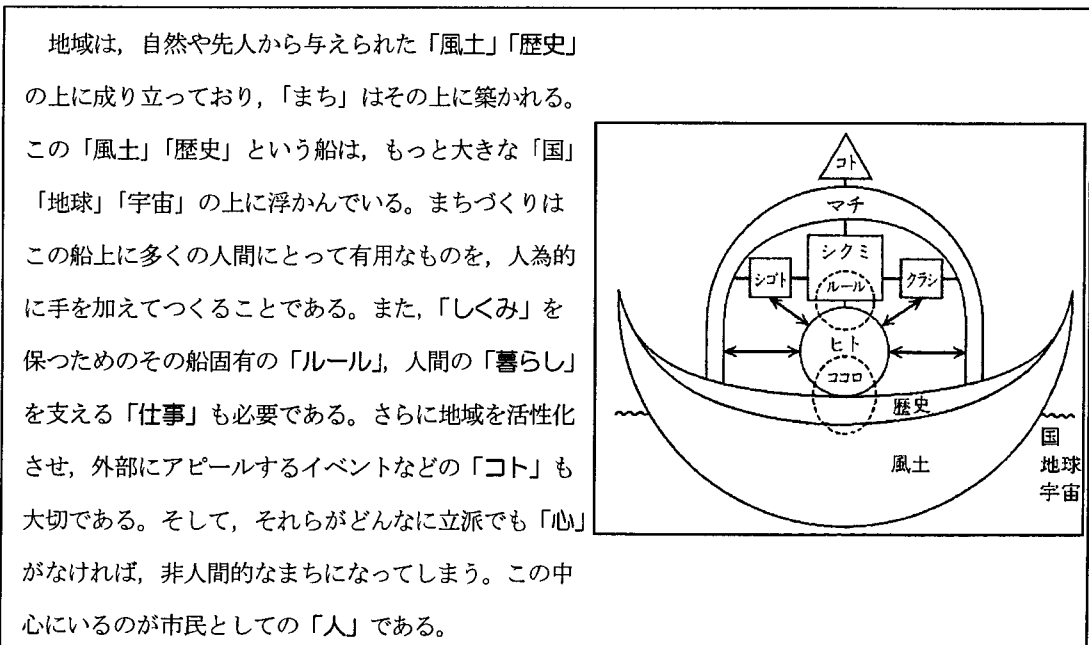 地域は，自然や先人から与えられた「風土」「歴史」
の上に成り立っており，「まち」はその上に築かれる。
この「風土」「歴史」という船は，もっと大きな「国」
「地球」「宇宙」の上に浮かんでいる。まちづくりは
この船上に多くの人間にとって有用なものを，人為的
に手を加えてつくることである。また，「しくみ」を
保つためのその船固有の「ルール」，人間の「暮らし」
を支える「仕事」も必要である。さらに地域を活性化
させ，外部にアピールするイベントなどの「コト」も
大切である。そして，それらがどんなに立派でも「心」
がなければ，非人間的なまちになってしまう。この中
心にいるのが市民としての「人」である。
コト
マチ
シクミ
シゴト
ルール
クラシ
ヒト
ココロ
歴史
風土
国
地球
宇宙